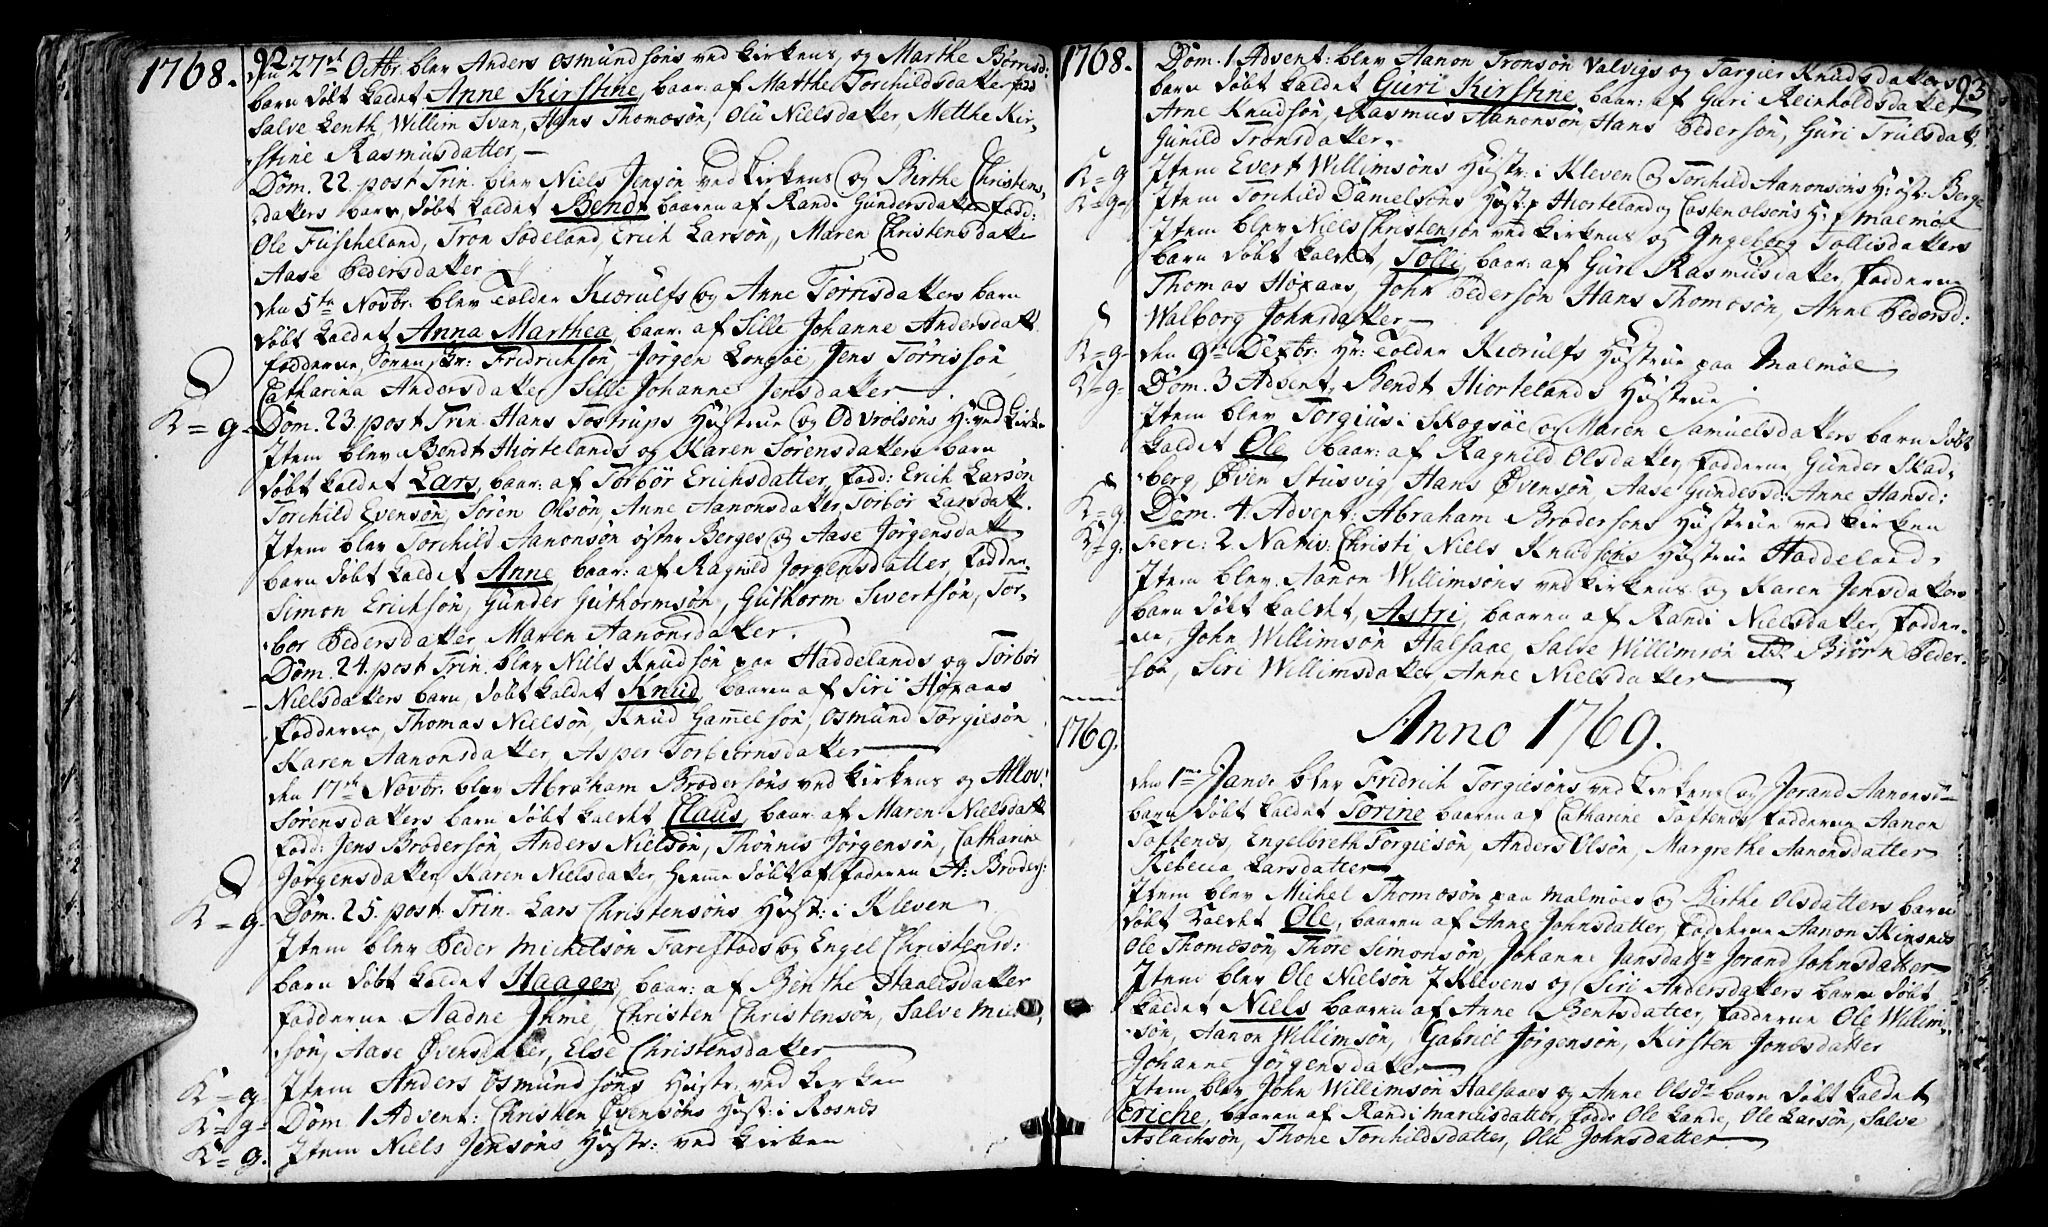 1768.
92
den 27de Octbr. blev Anders Osmundsøns ved Kirkens og Marthe Børnsd:
barn døbt kaldet Anne Kirstine, baar: af Marthe Torchildsdatter, fad
Salve Lenth, Willim Svan, Hans Thomøsøn, Olü Nielsdatter Metthe Kir-
stine Rasmusdatter,
Dom. 22. post Trin. blev Niels Jensøn ved Kirkens og Birthe Christens-
datters barn, døbt kaldet Bendt baaren af Randi Gundersdatter fadd:
Ole Fuscheland, Tron Sodeland, Erich Larsøn, Maren Christensdatter
Aase Pedersdatter
den 5te Novbr. blev Tolder Kierulfs og Anne Torrisdatters barn
døbt kaldet Anna Marthea, baar: af Sille Johanne Andersdatt
fadderne, Soren, Hr: Fridrichsøn Jørgen Longøe, Jens Torrissøn
Catharina Andersdatter Sille Johanne Jensdatter
K=g. Dom. 23. post Trin. Hans Tostrups Hustrue og Od Vrolsøns H: ved Kirke
Item blev Bendt Hiortelands og Karen Sørensdatters barn
døbt kaldet Lars, baar: af Torbør Erichsdatter, fadd: Erich Larsøn
Torchild Evensøn, Søren Olsøn, Anne Aanonsdatter, Torbor Larsdatt.
Item blev Torchild Aanonsøn øster Berges og Aase Jørgensdatt
barn døbt kaldet Anne baar: af Ragnild Jørgensdatter, fadder-
Simon Erichsøn, Gunder Guthormsøn, Guthorm Sivertsøn, Tor-
bor Pedersdatter Maren Aanonsdatter.
Dom. 24. post Trin. blev Niels Knudsøn paa Haddelands og Torbor
Nielsdatters barn, døbt kaldet Knud, baaren af Siri Høxaas
fadderne, Thomas Nielsøn, Knud Gamelsøn, Osmund Torgiesøn
Karen Aanonsdatter, Asper Torbiornsdatter
den 17de Novbr. blev Abraham Brodersøns ved Kirkens og Allov
Sørensdatters barn døbt kaldet Claus, baar: af Maren Nielsdatt
fadd: Jens Brodersøn, Anders Nielsøn, Thønnis Jørgensøn, Catharine
Jørgensdatter, Karen Nielsdatter, Hiemme døbt af faderen A: Broders:
K=g. Dom. 25. post Trin. Lars Christensøns Hust: i Kleven
Item blev Peder Michelsøn Farestads og Engel Christensd:
barn døbt kaldet Haagen, baar: af Benthe Haalesdatter
fadderne Aadne Ihme, Christen Christensøn, Salve Mich-
søn, Aase Øvensdatter, Else Christensdatter
K=g Item Anders Osmundsøns Hustr: ved Kirken
K=g. Dom. 1 Advent: Christen Øvensøns Hust: i Rosnæs
K=g. Item Niels Jensøns Hustr: ved Kirken
1768.
93
Dom. 1 Advent: blev Aanon Tronsøn Valvigs og Targier Knudsdatters
barn døbt kaldet Guri Kirstine, baar: af Guri Reinholdsdatter
Arne Knudsøn, Rasmus Aanonsøn, Hans Pedersøn, Guri Trulsdatt,
Gunild Tronsdatter.
K=g Item Evert Willimsøns Hustr: i Kleven og Torchild Aanonsøns H: øst. Berge
K=g. Item Torchild Danielsøns Hust. Hiorteland og Casten Olsøns H: Malmøe
Item blev Niels Christensøn ved Kirkens og Ingeborg Tollisdatters
barn døbt kaldet, Tolli, baar: af Guri Rasmusdatter, fadderne
Thomas Høxaas, John Pedersøn Hans Thomøsøn, Anne Pedersd:
Walborg Johnsdatter
K=g. den 9de Dexbr: Hr: Tolder Kierulfs Hustrue paa Malmøe
K=g. Dom. 3 Advent, Bendt Hiortelands Hustrue
Item blev Torgius i Skogsøe og Maren Samuelsdatters barn døbt
kaldet Ole baar: af Ragnild Olsdatter, fadderne Gunder Skad-
berg, Øven Stusvig, Hans Øvensøn, Aase Gundersd: Anne Hansd:
K=g. Dom. 4. Advent: Abraham Brodersøns Hustrue ved Kirken
K=g. Feri: 2. Nativ: Christi Niels Knudsøns Hustrue Haddeland.
Item blev Aanon Willimsøns ved Kirkens og Karen Jensdatters
barn døbt kaldet, Astri, baaren af Randi Nielsdatter, fadder-
ne, John Willimsøn Halsaae, Salve Willimsøn Biørn Peder-
søn, Siri Willimsdatter, Anne Nielsdatter
1769.
Anno 1769.
den 1me Janv: blev Fridrich Torgiesøns ved Kirkens og Jorand Aanonsdr
barn døbt kaldet Torine baaren af Catharine Toftenæs, fadderne Aanon
Toftenæs, Engelbreth Torgiesøn, Anders Olsøn, Margrethe Aanonsdatter
Rebecca Larsdatter
Item blev Michel Thomøsøn paa Malmøes og Birthe Olsdatters barn
døbt kaldet Ole, baaren af Anne Johnsdatter, fadderne Aanon Skinsnæs
Ole Thomøsøn, Thore Simonsøn, Johanne Jansdatr Jorand Johnsdatter
Item blev Ole Nielsøn i Klevens og Siri Andersdatters barn døbt
kaldet Niels baaren af Anne Bentsdatter, fadderne Ole Willim-
søn, Aanon Willimsøn, Gabriel Jørgensøn, Kirsten Jonæsdatter
Johanne Jørgensdatter
Item blev John Willimsøn Halsaaes og Anne Olsdr barn døbt kaldet
Eriche, baaren af Randi Marcusdatter, fadd: Ole Lande, Ole Larsøn, Salve
Aslachsøn, Thore Torchildsdatter, Olü Johnsdatter